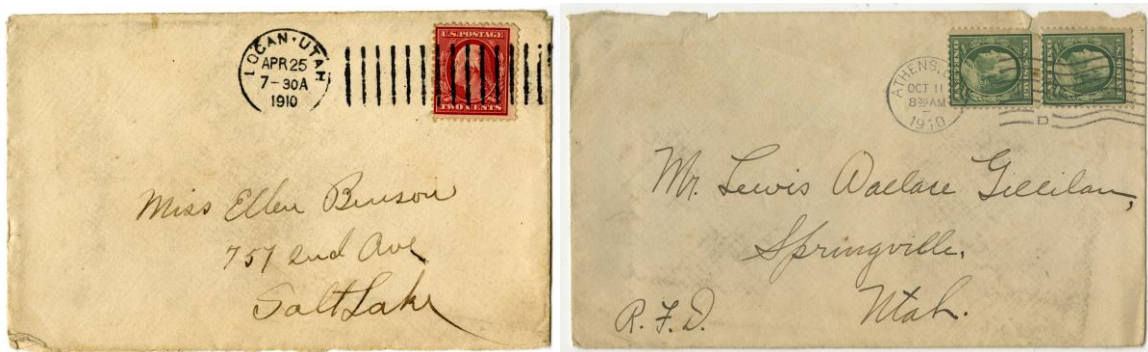 LOGAN·UTAH
APR 25
7-30A
1910
U.S. POSTAGE
TWO CENTS
Miss Ellen Binson
757 2nd Ave
Salt Lake
ATHENS,
OCT 11
8 30 AM
1910
D
Mr. Lewis Wallace Gillilan,
Springville,
Utah.
R. F. D.